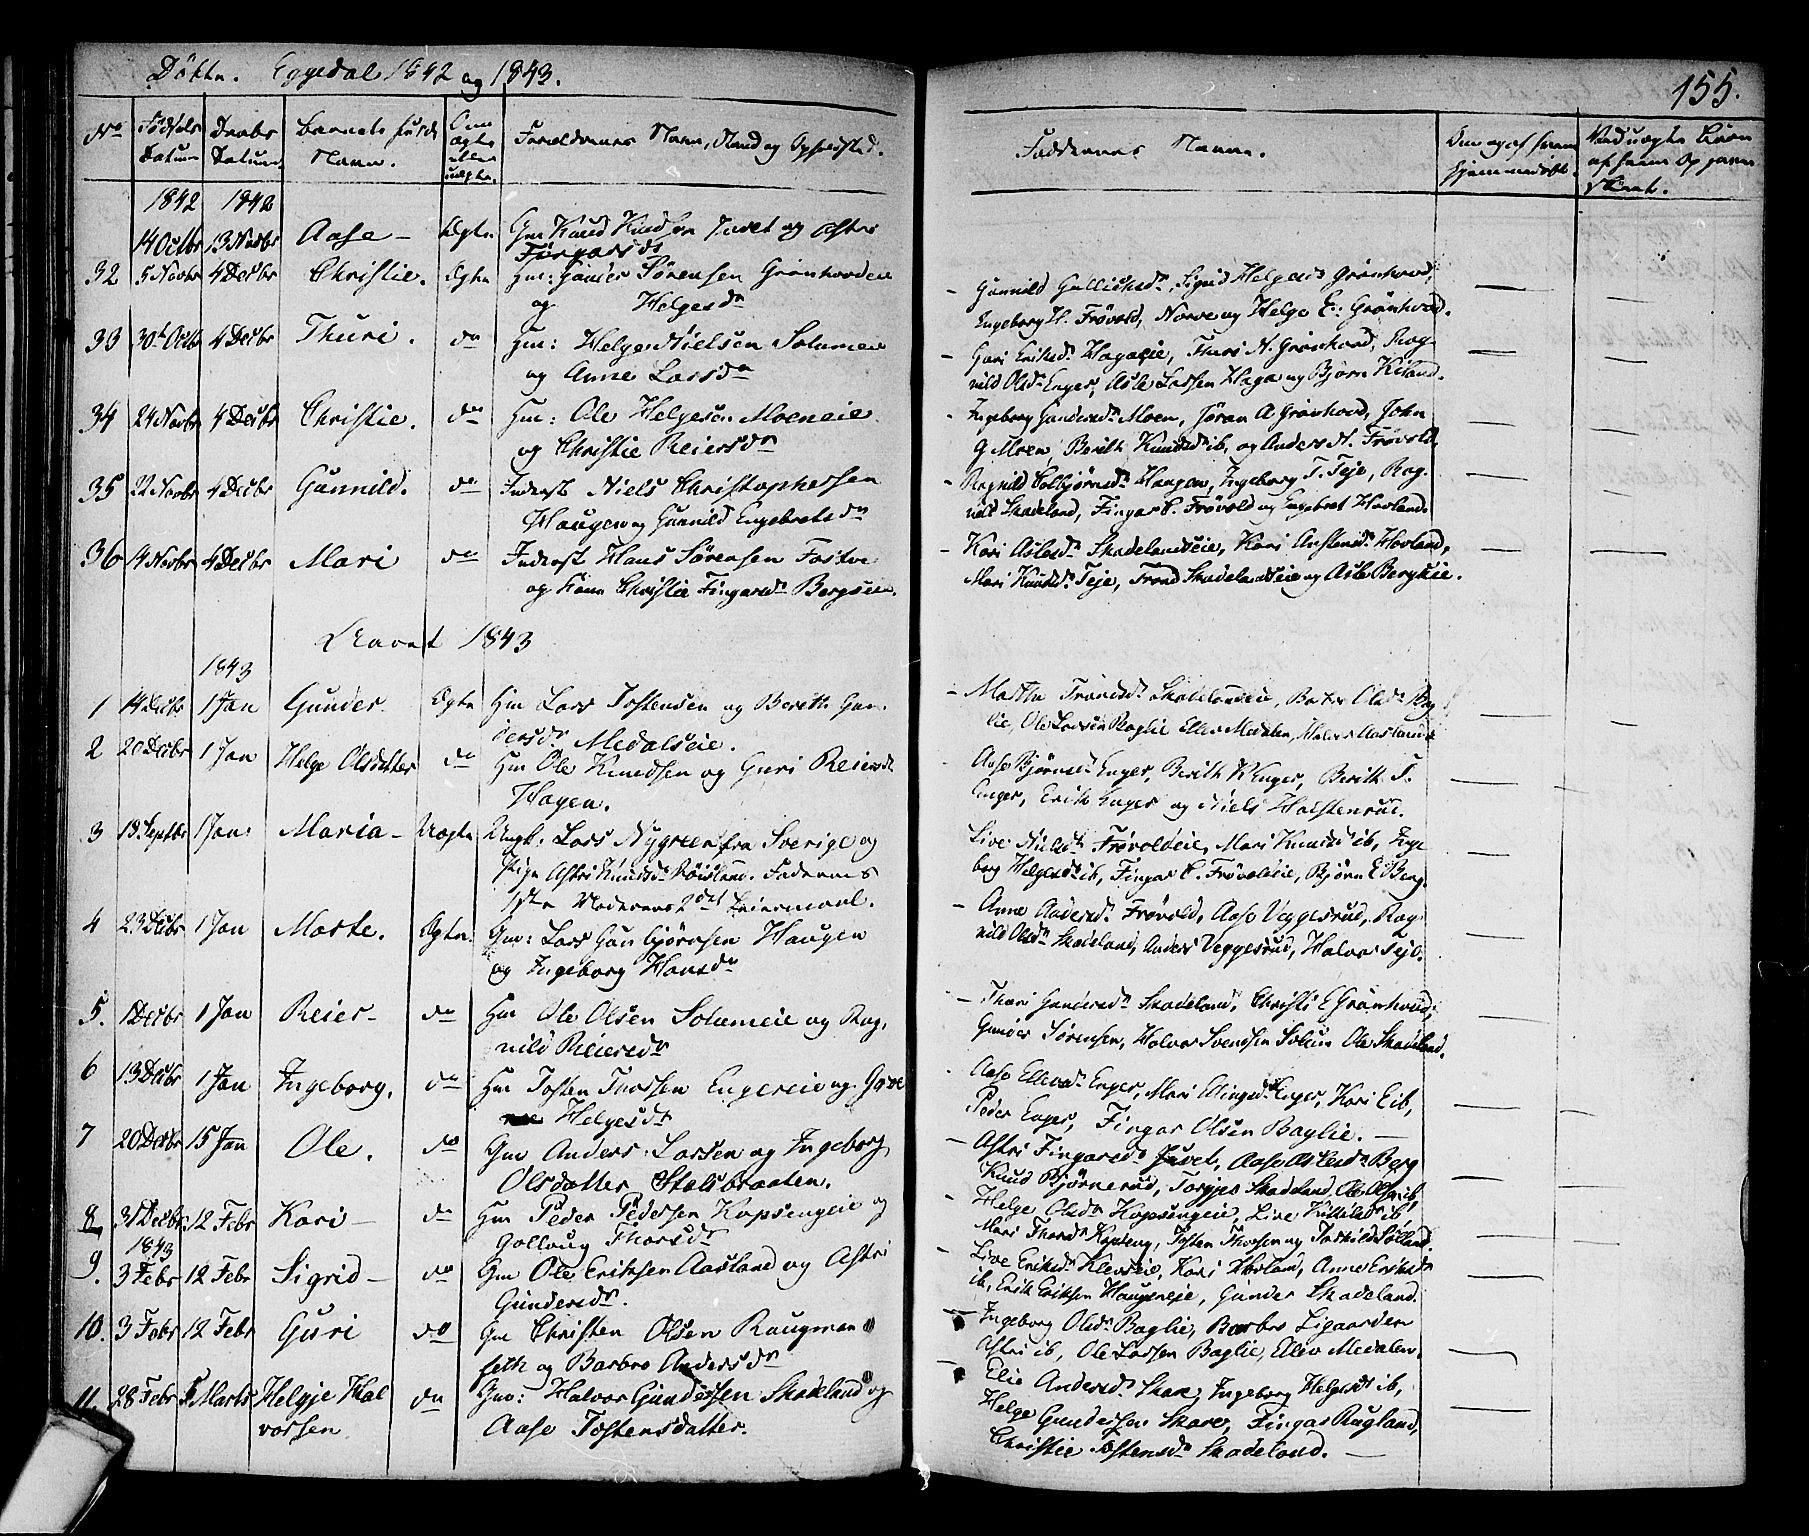 Döbte. Eggedal 1842 og 1843.
155.
No Fødsels Datum Daabs Datum Barnets fulde Navn. Om ægte eller uægte. Forældrenes Navn, Stand og Opholdsted.
Faddernes Navne.
1842 1842
14 Octbr 13 Novbr Aase – Ægte Gm Knud Knudsen Juvet og Astri
Fingarsdr
32 5 Novbr 4 Decbr Christie. Ægte Hm: Gunder Sörensen Grönhovdeie
og Helgesdr
– Gunnild Gulliksdr, Sigrid Helgesdr Grönhovd,
Ingeborg H. Frövold, Narve og Helge E: Grönhovd.
33 30te Octb 4 Decbr Thuri. do Hm: Helge Nielsen Solumeie
og Anne Larsdr
– Guri Eriksdr Hagaeie, Thuri N. Grönhovd, Rag-
nild Olsdr Enger, Asle Larsen Haga og Björn Kiland.
34 24 Novbr 4 Decbr Christie. do Hm: Ole Helgesen Moeneie
og Christie Reiersdr
– Ingeborg Gundersdr Moen, Jöran A Grönhovd, John
G Moen, Berith Knudsdr ib, og Anders H. Frövold,
35 22 Novbr 4 Decbr Gunnild. do Inderst Niels Christophersen
Haugen og Gunnild Engebretsdr
– Ragnild Colbjörnsdr Haugen, Ingeborg T. Teje, Rag-
nild Skadeland, Fingar C. Frövold og Engebret Hovland.
36 14 Novbr 4 Decbr Mari do Inderst Hans Sörensen
og Kone Christie Fingarsdr Bergseie.
– Kari Aslesdr Skadelandseie, Kari Anstensdr Hovland,
Mari Knudsdr Teje, Trond Skadelandseie og Asle Bergseie.
Aaret 1843
1843
1 14 Decbr 1 Jan Gunder Ægte Hm Lars Tostensen og Berith Gun-
dersdr Medalseie.
– Martha Trondsdr Skadelandseie, Olsdr Bag-
lie, Ole Larsen Baglie Ellev Medalen, Halvor Aasland
2 20 Decbr 1 Jan Helge Olsdatter do Hm Ole Knudsen og Guri Reiersdr
Hagen.
– Aase Björnsdr Enger, Berith K Enger, Berith T.
Enger, Erik Enger og Niels Holstensrud.
3 18 Septbr 1 Jan: Maria – Uægte Ungk. Lars Nygreen fra Sverige og
Pige Astri Knudsdr Röisland. Faderens
1ste Moderens 2det Leiermaal.
Live Nielsdr Frövoldeie, Mari Knudsdr ib, Inge
borg Helgesdr ib, Fingar C. Frövoldeie, Björn E Berg.
4 23 Decbr 1 Jan Marte. Ægte. Gm: Lars Gunbjörnsen Haugen
og Ingeborg Hansdr
– Anne Andersdr Frövold, Aase Veggesrud, Rag-
nild Olsdr Skadeland, Anders Veggesrud, Halvor Teje.
5. 1 Decbr 1 Jan Reier – do Hm Ole Olsen Solumeie og Rag-
nild Reiersdr
– Thuri Gundersdr Skadeland, Christi E Grönhovd;
Gunder Sörensen, Halvor Svendsen Solum Ole Skadeland.
6 13 Decbr 1 Jan Ingeborg. do Hm Tosten Thorsen Engereie og
Helgesdr
– Aase Ellevsdr Enger, Mari Ellingsdr Enger, Kari E ib,
Peder Enger, Fingar Olsen Baglie. –
7 20 Decbr 15 Jan Ole. do Gm Anders Larsen og Ingeborg
Olsdatter Stalsbraaten.
– Astri Fingarsdr Juvet, Aase Aslesdr Berg
Knud Björnerud, Torgjer Skadeland, Ole Olsen ib,
8 31 Decbr 12 Febr Kari – do Hm Peder Pedersen Kopsengeie og
Gollaug Thorsdr
– Helge Olsdr Kopsengeie, Live Killilsdr ib
Mari Thorsdr Kopseng, Tosten Thorsen og Torkild Sölland.
1843
9. 3 Febr 12 Febr Sigrid – do Gm Ole Eriksen Aasland og Astri
Gundersdr.
– Live Eriksdr Kleveie, Kari Aasland, Anne Eriksdr
ib, Erik Eriksen Haugeneje, Gunder Skadeland.
10. 3 Febr 12 Febr Guri do Gm Christen Olsen Raugman
seth og Barbro Andersdr
– Ingeborg Olsdr Baglie, Barbro Ligaarden
Astri ib, Ole Larsen Baglie, Ellev Medalen,
11. 28 Febr 5 Marts Helgje Hal
vorsen do Gm: Halvor Gundersen Skadeland og
Aase Tostensdatter.
– Elie Andersdr Skare, Ingeborg Helgesdr ib,
Helge Gundersen Skare, Fingar Rugland,
Christie Tostensdr Skadeland. –